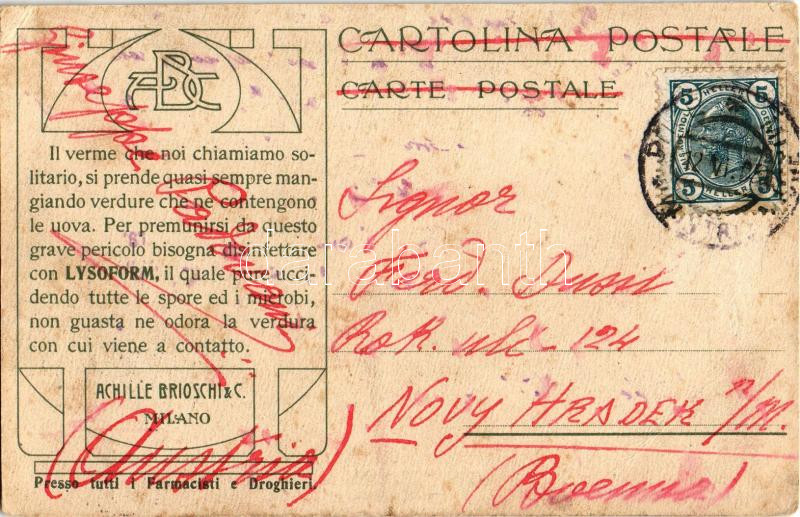 ABC
CARTOLINA POSTALE
CARTE POSTALE
Il verme che noi chiamiamo so-
litario, si prende quasi sempre man-
giando verdure che ne contengono
le uova. Per premunirsi da questo
grave pericolo bisogna disinfettare
con LYSOFORM, il quale pure ucci-
dendo tutte le spore ed i microbi,
non guasta ne odora la verdura
con cui viene a contatto.
ACHILLE BRIOSCHI & C.
MILANO
Presso tutti i Farmacisti e Droghieri.
(Austria)
5 HELLER 5
5 HELLER 5
Signor
Ferd. Dusil
Rok. ul. 124
NOVY HRADEK n/M.
(Boemia)
darabanth